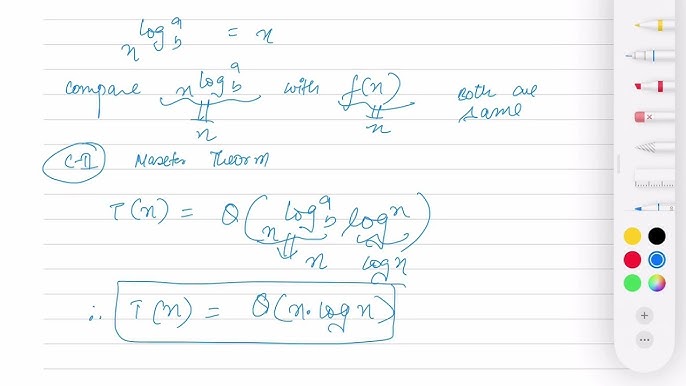 n^{log_b^a} = n
compare n^{log_b^a} with f(n) both are same
n n
C-II Master Theorm
T(n) = θ(n^{log_b^a} log n)
n log n
∴ T(n) = θ(n·log n)